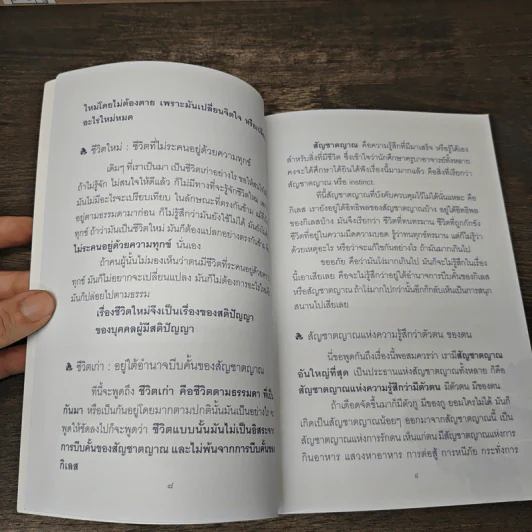 ใหม่โดยไม่ต้องตาย เพราะมันเปลี่ยนจิตใจ
อะไรใหม่หมด
ชีวิตใหม่ : ชีวิตที่ไม่ระคนอยู่ด้วยความทุกข์
เดิมๆ ที่เราเป็นมา เป็นชีวิตเก่าอย่างไร
ถ้าไม่รู้จัก ไม่สนใจให้ดีแล้ว ก็ไม่มีทางที่จะรู้จักชีวิตใหม่
มันไม่มีอะไรจะเปรียบเทียบ ในลักษณะที่ตรงกันข้าม
อยู่ตามธรรมดามาก่อน ก็ไม่รู้สึกว่ามันยังใช้ไม่ได้
ทุกข์ ถ้าว่ามันเป็นชีวิตใหม่ มันก็ต้องแปลกอย่างตรงกันข้าม
ไม่ระคนอยู่ด้วยความทุกข์ นั่นเอง
ถ้าคนผู้นั้นไม่มองเห็นว่าตนมีชีวิตที่ระคนอยู่ด้วย
ทุกข์ มันก็ไม่อยากจะเปลี่ยนแปลง มันก็ไม่ต้องการอะไร
มันก็ปล่อยไปตามธรรม
เรื่องชีวิตใหม่จึงเป็นเรื่องของสติปัญญา
ของบุคคลผู้มีสติปัญญา
ชีวิตเก่า : อยู่ใต้อำนาจบีบคั้นของสัญชาตญาณ
ที่นี้จะพูดถึง ชีวิตเก่า คือชีวิตตามธรรมดา ที่เป็น
กันมา หรือเป็นกันอยู่โดยมากตามปกตินั้นมันเป็นอย่างไร
พูดให้ชัดลงไปก็จะพูดว่า ชีวิตแบบนั้นมันไม่เป็นอิสระ
การบีบคั้นของสัญชาตญาณ และไม่พ้นจากการบีบคั้นของ
กิเลส
๘
สัญชาตญาณ คือความรู้สึกที่มีมาเสร็จ หรือรู้ได้เอง
สำหรับสิ่งที่มีชีวิต ซึ่งเข้าใจว่านักศึกษาครูบาอาจารย์ทั้งหลาย
คงจะได้ศึกษาได้ยินได้ฟังเรื่องนี้มามากแล้ว คือสิ่งที่เรียกว่า
สัญชาตญาณ หรือ instinct.
ที่นี้สัญชาตญาณที่บังคับควบคุมไว้ไม่ได้นั่นแหละ คือ
กิเลส เรายังอยู่ใต้อิทธิพลของสัญชาตญาณบ้าง อยู่ใต้อิทธิพล
ของกิเลสบ้าง มันจึงเรียกว่า ชีวิตที่ทนทรมาน ชีวิตที่ถูกกักขัง
ชีวิตที่อยู่ในความมืดความบอด รู้ว่าทนทุกข์ทรมาน แต่ก็ไม่รู้ว่า
ด้วยเหตุอะไร หรือว่าจะแก้ไขกันอย่างไร ถ้ามันมากเกินไป
ขออภัย คือว่ามันโง่มากเกินไป มันก็จะไม่รู้สึกในเรื่อง
นี้เอาเสียเลย คือจะไม่รู้สึกว่าอยู่ใต้อำนาจการบีบคั้นของกิเลส
หรือสัญชาตญาณ ถ้าโง่มากไปกว่านั้นอีกก็กลับเห็นเป็นการสนุก
สนานไปเสียเลย
สัญชาตญาณแห่งความรู้สึกว่าตัวตน ของตน
นี่ขอพูดกันถึงเรื่องนี้พอสมควรว่า เรามีสัญชาตญาณ
อันใหญ่ที่สุด เป็นประธานแห่งสัญชาตญาณทั้งหลาย ก็คือ
สัญชาตญาณแห่งความรู้สึกว่ามีตัวตน มีตัวตน มีของตน
ถ้าเดือดจัดขึ้นมาก็มีตัวกู มีของกู ยอมใครไม่ได้ มันก็
เกิดเป็นสัญชาตญาณน้อยๆ ออกมาจากสัญชาตญาณนี้ เป็น
สัญชาตญาณแห่งการรักตน เห็นแก่ตน มีสัญชาตญาณแห่งการ
กินอาหาร แสวงหาอาหาร การต่อสู้ การหนีภัย กระทั่งการ
๙